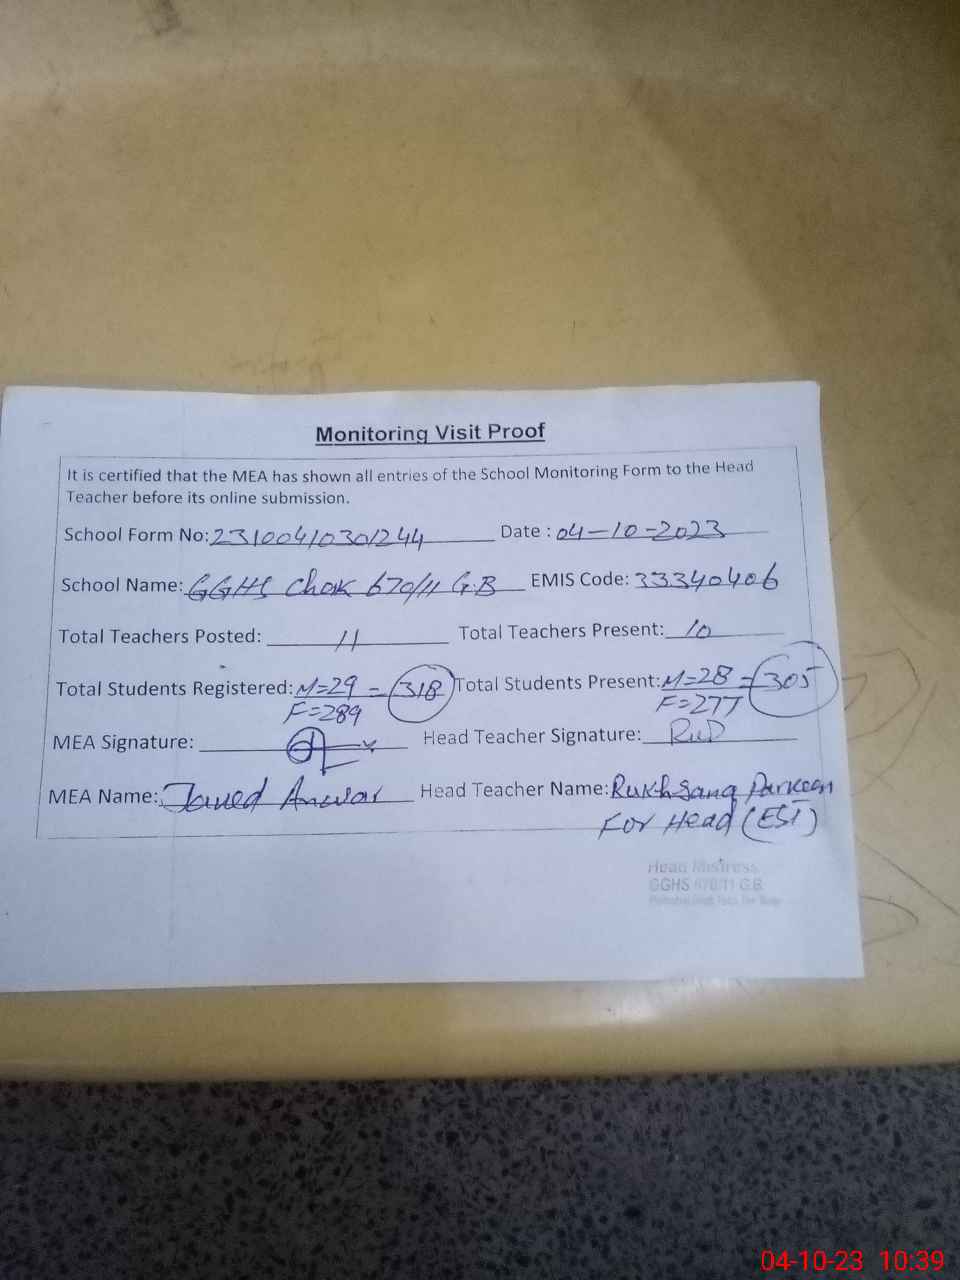 Monitoring Visit Proof
It is certified that the MEA has shown all entries of the School Monitoring Form to the Head
Teacher before its online submission.
School Form No: 23100410301244 Date : 04-10-2023
School Name: GGHS Chak 670/11 GB EMIS Code: 33340406
Total Teachers Posted: 11 Total Teachers Present: 10
Total Students Registered: M=29 = 318 Total Students Present: M=28 = 305
F=289 F=277
MEA Signature: Head Teacher Signature:
MEA Name: Javed Anwar Head Teacher Name: Rukhsana Parveen
For Head (EST)
Head Mistress
GGHS 670/11 G.B
04-10-23 10:39